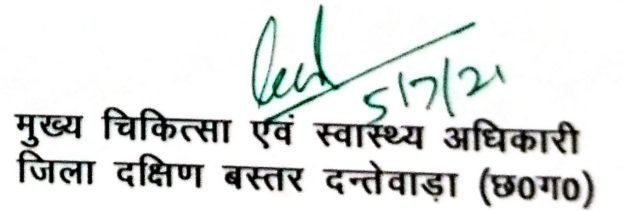 5/7/21
मुख्य चिकित्सा एवं स्वास्थ्य अधिकारी
जिला दक्षिण बस्तर दन्तेवाड़ा (छ0ग0)